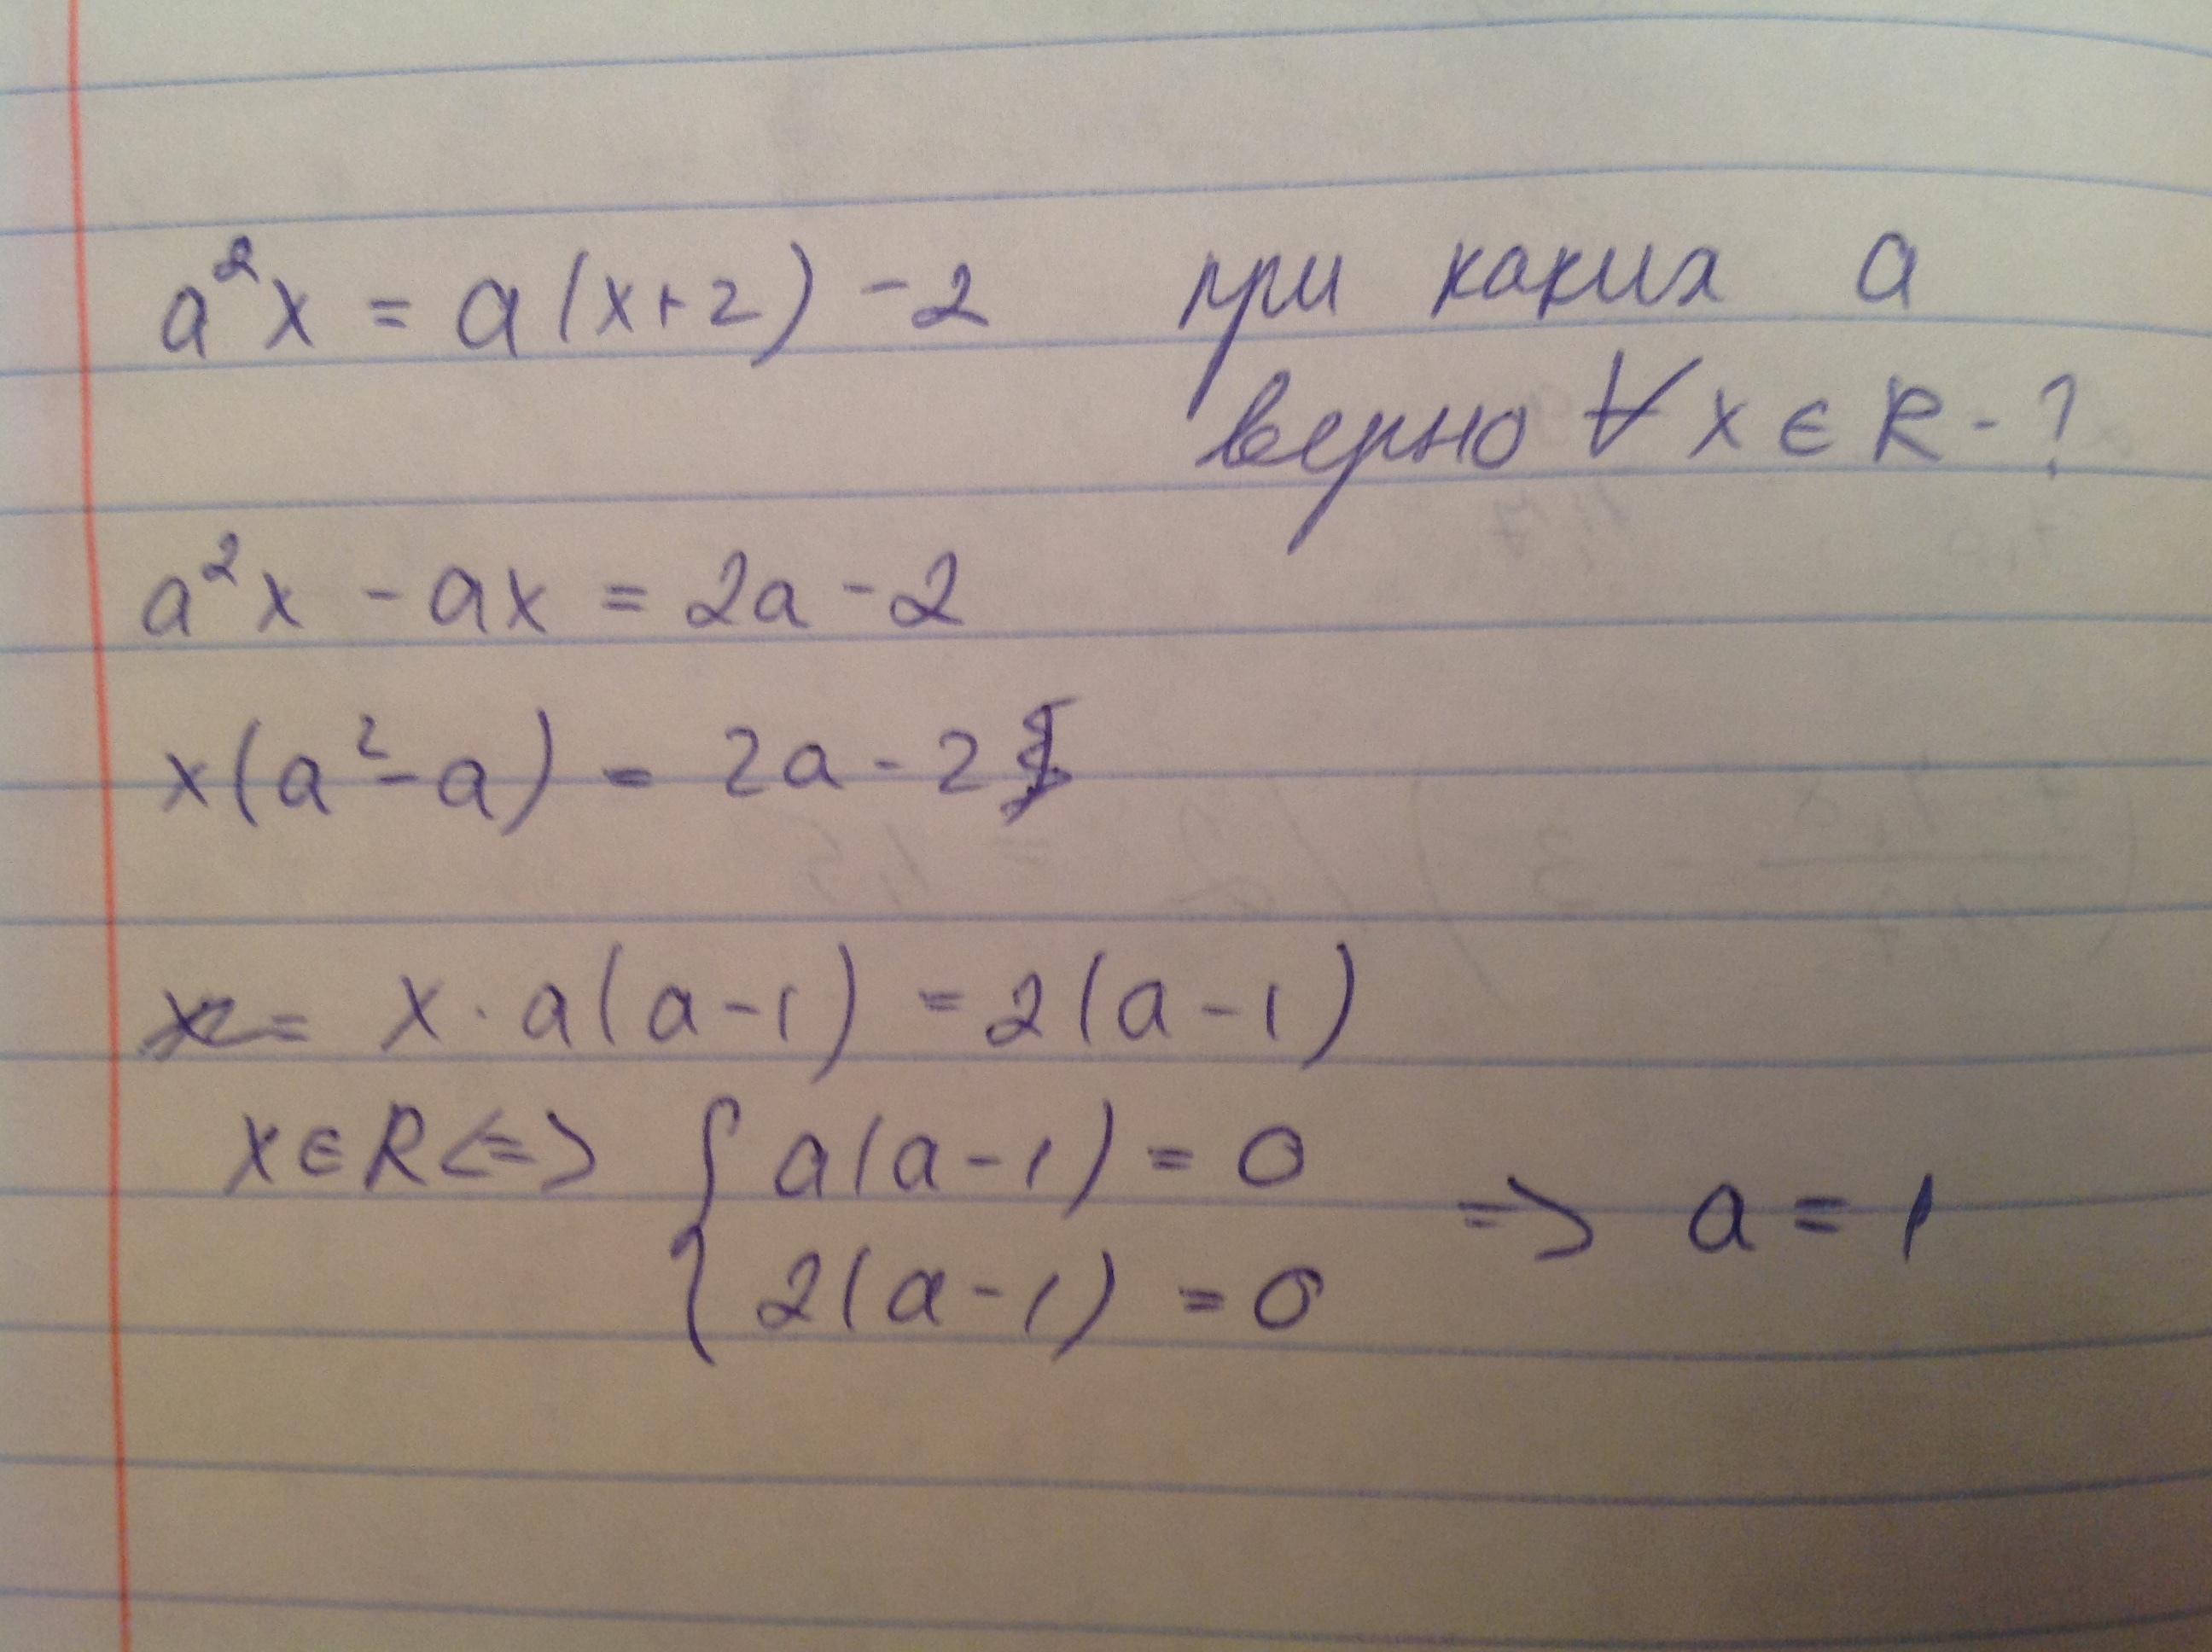 a²x = a(x+2) - 2 при каких a
верно ∀ x ∈ R - ?
a²x - ax = 2a - 2
x(a² - a) = 2a - 2
x · a(a - 1) = 2(a - 1)
x ∈ R <=> { a(a - 1) = 0 => a = 1
2(a - 1) = 0